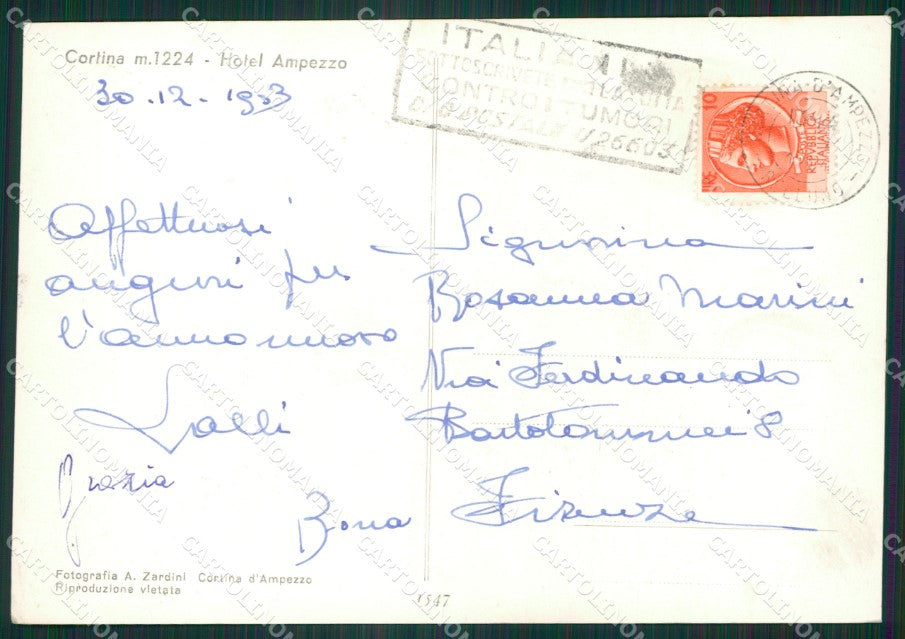 Cortina m.1224 - Hotel Ampezzo
30.12.1953
ITALIANI
SOTTOSCRIVETE
LOTTA
CONTRO I TUMORI
C/C POSTALE 1/26603
10
LIRE
POSTE
REPVBBLICA
ITALIANA
D'AMPEZZO
Affettuosi
auguri per
l'anno nuovo
Lalli
Grazia
Bona
Signorina
Rosanna Marini
Via Ferdinando
Bartolommei 8
Firenze
Fotografia A. Zardini Cortina d'Ampezzo
Riproduzione vietata
1547
CARTOLINOMANIA